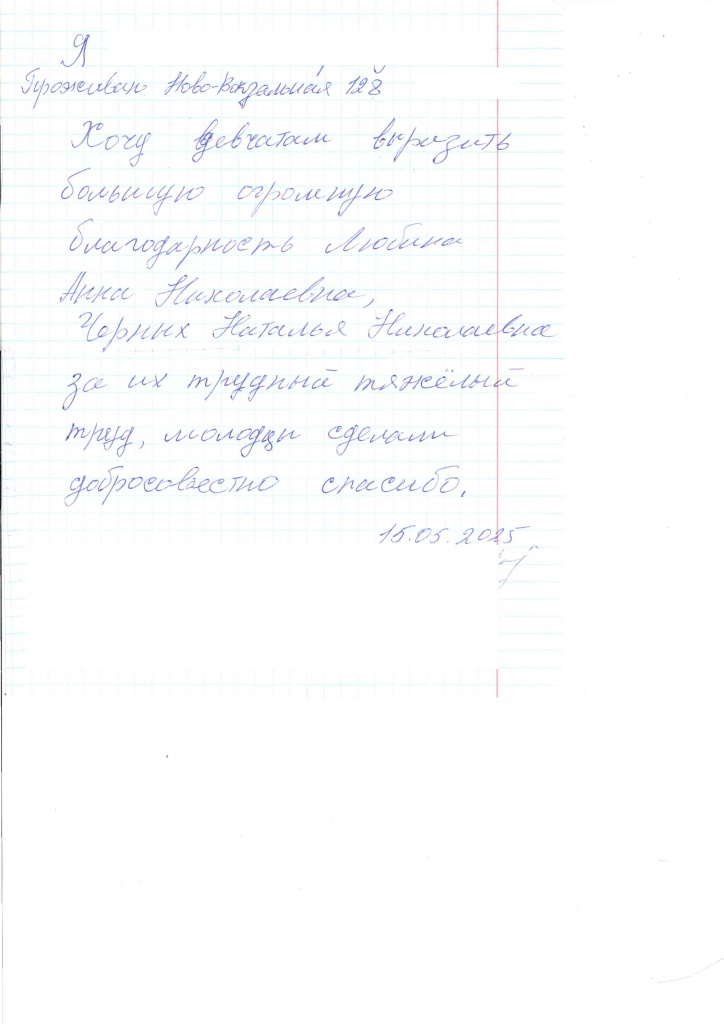 Я
Проживаю Ново-Вокзальная 128
Хочу девчатам выразить
большую огромную
благодарность Любина
Анна Николаевна,
Черных Наталья Николаевна
за их трудный тяжёлый
труд, молодцы сделали
добросовестно спасибо.
15.05.2025